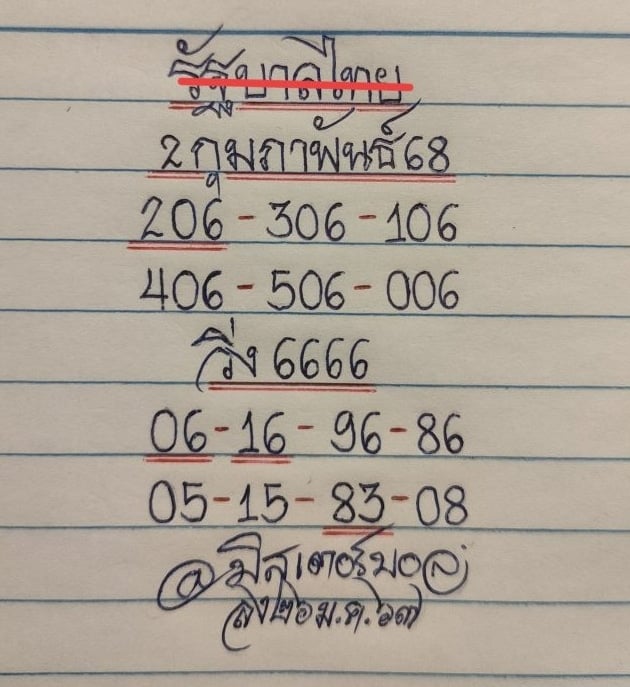 รัฐบาลไทย
2 กุมภาพันธ์ 68
206 - 306 - 106
406 - 506 - 006
วิ่ง 6666
06 - 16 - 96 - 86
05 - 15 - 83 - 08
@มิสเตอร์บอล
ม.ค. ๖๗